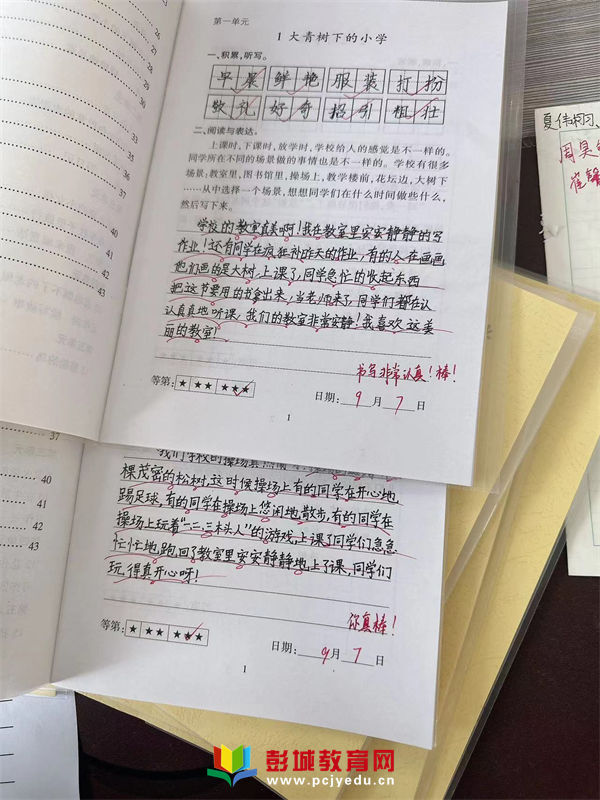 第一单元
1 大青树下的小学
一、积累,听写。
早晨 鲜艳 服装 打扮
敬礼 好奇 招引 粗壮
二、阅读与表达。
上课时,下课时,放学时,学校给人的感觉是不一样的。
同学所在不同的场景做的事情也是不一样的。学校有很多
场景:教室里,图书馆里,操场上,教学楼前,花坛边,大树下
……从中选择一个场景,想想同学们在什么时间做些什么,
然后写下来。
学校的教室真美啊!我在教室里安安静静的写
作业!还有同学在疯狂补昨天的作业,有的人在画画
他们画的是大树,上课了,同学急忙的收起东西
把这节要用的书拿出来,当老师来了,同学们都在认
认真真地听课,我们的教室非常安静!我喜欢这美
丽的教室!
书写非常认真!棒!
等第: ★ ★★ ★★★
日期: 9 月 7 日
1
26
29
32
35
37
40
41
43
我们学校的操场真热闹
棵茂密的松树,这时候操场上有的同学在开心地
踢足球,有的同学在操场上悠闲地散步,有的同学在
操场上玩着“一二三木头人”的游戏,上课了同学们急急
忙忙地跑回了教室里安安静静地上了课,同学们
玩得真开心呀!
你真棒!
等第: ★ ★★ ★★★
日期: 9 月 7 日
1
37
40
42
43
夏伟
周昊
崔馨
彭城教育网
www.pcjyedu.cn